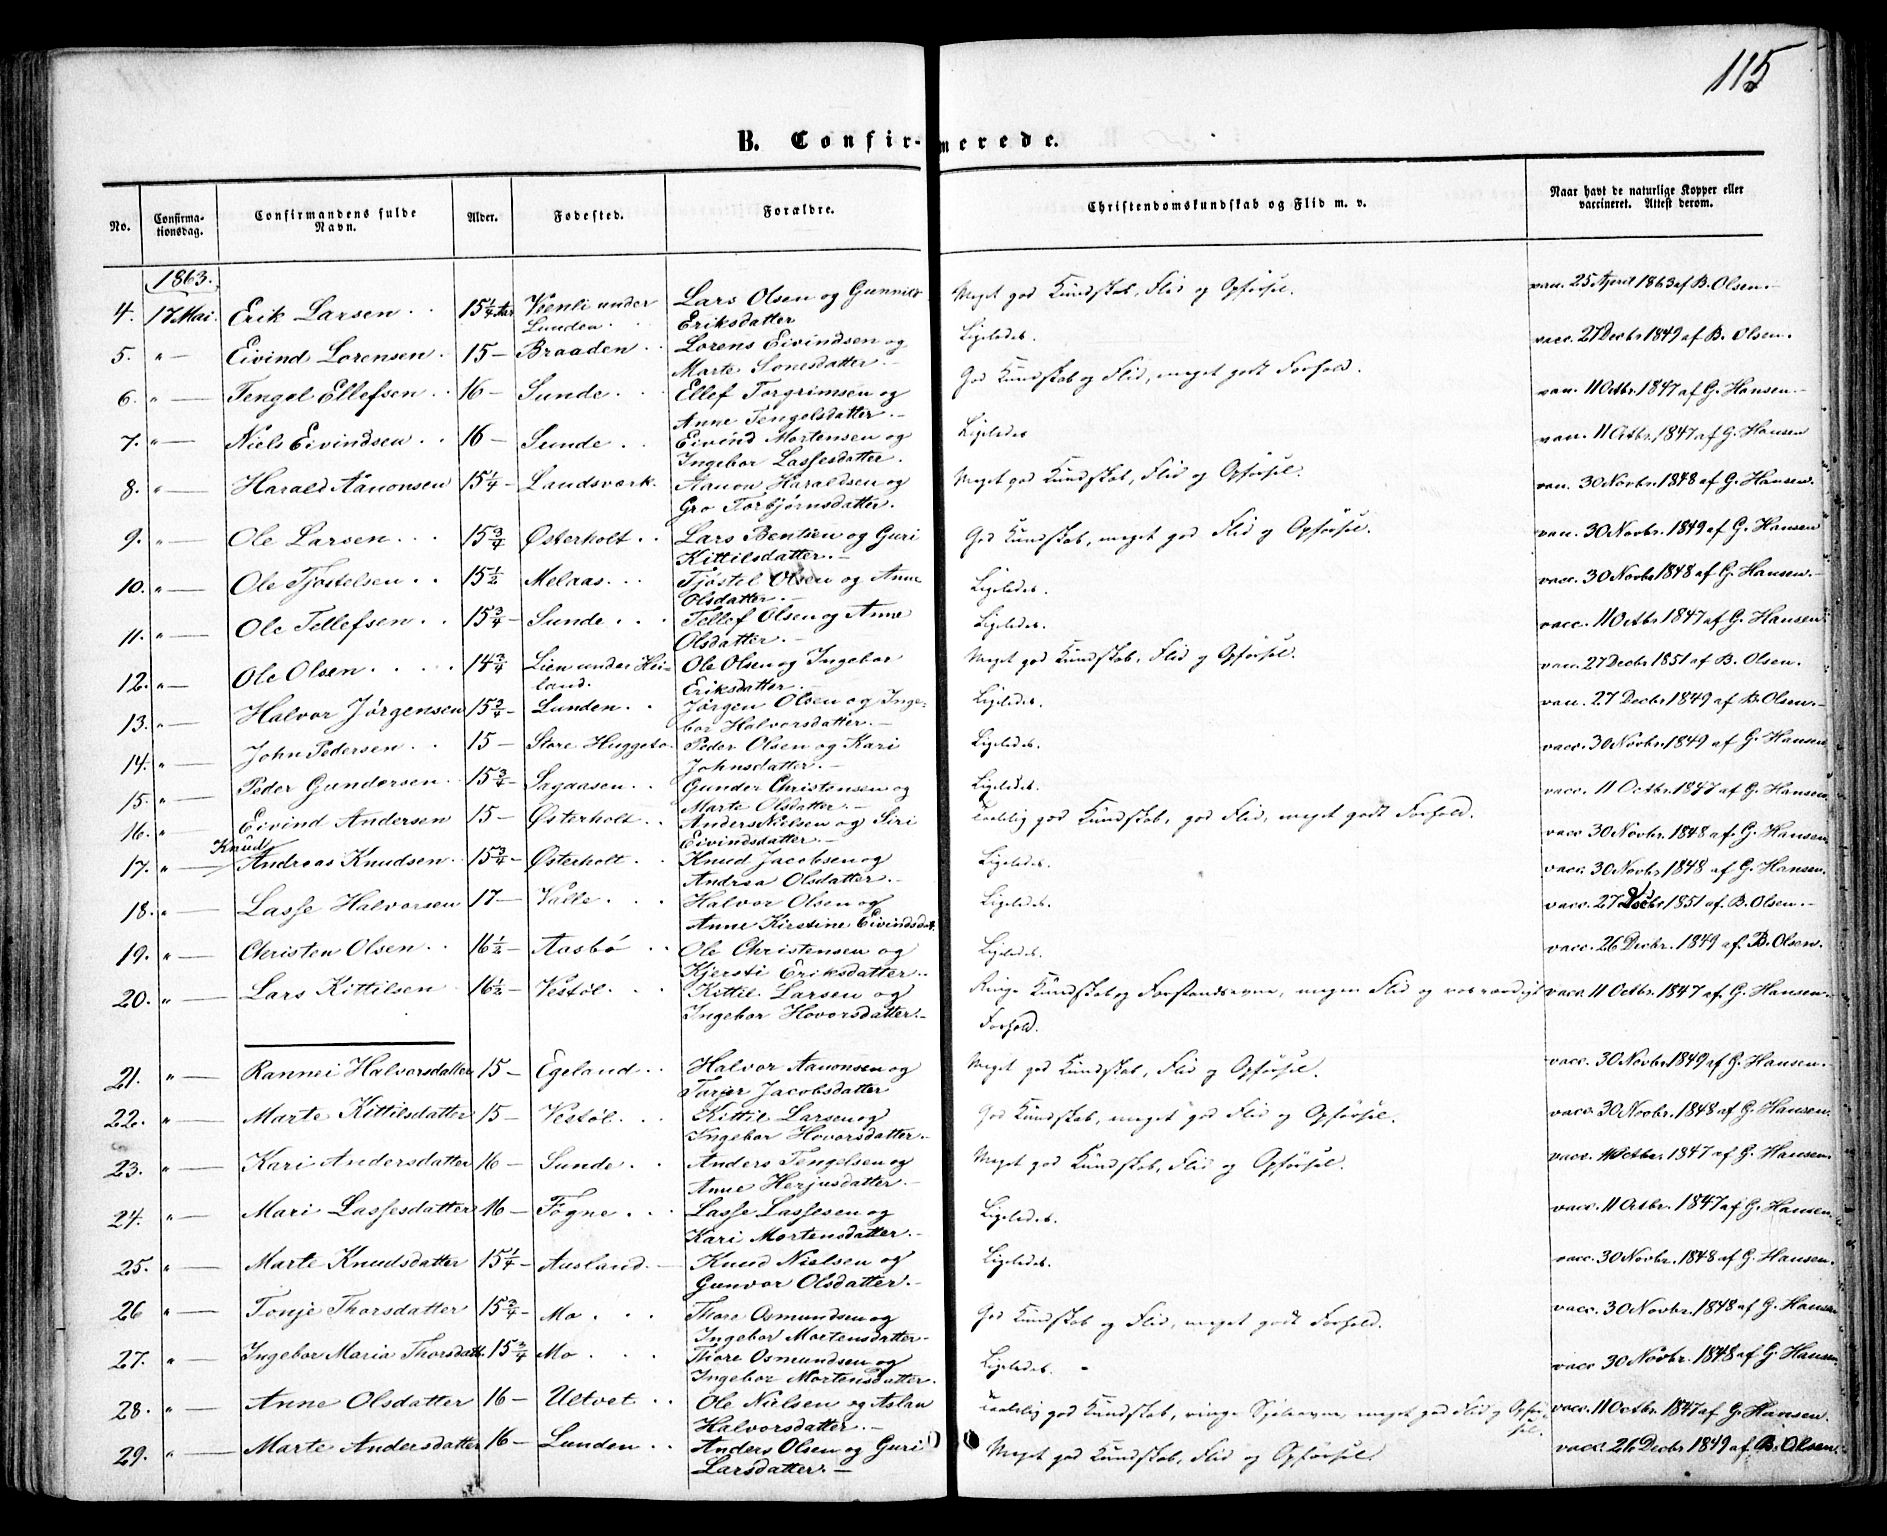 115
B. Confirmerede.
No. Confirmationsdag. Confirmandens fulde Navn. Alder. Fødested. Forældre. Christendomskundskab og Flid m. v. Naar havt de naturlige Kopper eller vaccineret. Attest derom.
1863.
4. 17 Mai. Erik Larsen 15 1/4 Aar Vienli under Lunden Lars Olsen og Gunnild Eriksdatter Meget god Kundskab, Flid og Opførsel. vacc. 25 April 1863 af B. Olsen.
5. " Eivind Lorensen 15 – Braaden Lorens Eivindsen og Marte Sonesdatter Ligeledes. vacc. 27 Decbr 1849 af B. Olsen.
6. " Tengel Ellefsen 16 – Sunde Ellef Torgrimsen og Anne Tengelsdatter God Kundskab og Flid, meget godt Forhold. vacc. 11 Octbr. 1847 af G. Hansen
7. " Niels Eivindsen 16 – Sunde Eivind Mortensen og Ingebor Lassesdatter. Ligeledes vacc. 11 Octbr. 1847 af G. Hansen
8. " Harald Aanonsen 15 1/4 – Landsværk. Aanon Haraldsen og Gro Torbjørnsdatter. Meget god Kundskab, Flid og Opførsel. vacc. 30 Novbr. 1848 af G. Hansen.
9. " Ole Larsen 15 3/4 Østerholt Lars Bentsen og Guri Kittilsdatter. God Kundskab, meget god Flid og Opførsel. vacc. 30 Novbr. 1849 af G. Hansen
10. " Ole Tjøstelsen 15 1/2 Melaas Tjøstel Olsen og Anne Olsdatter. Ligeledes. vacc. 30 Novbr 1848 af G. Hansen.
11. " Ole Tellefsen 15 3/4 – Sunde Tellef Olsen og Anne Olsdatter. Ligeledes. vacc. 11 Octbr 1847 af G. Hansen.
12. " Ole Olsen 14 3/4 – Lien under Heiland. Ole Olsen og Ingebor Eriksdatter. Meget god Kundskab, Flid og Opførsel. vacc. 27 Decbr 1851 af B. Olsen.
13. " Halvor Jørgensen 15 3/4 – Lunden Jørgen Olsen og Ingebor Halvorsdatter. Ligeledes. vacc. 27 Decbr 1849 af B. Olsen.
14. " John Pedersen 15 – Store Huggeto. Peder Olsen og Kari Johnsdatter. Ligeledes. vacc. 30 Novbr. 1849 af G. Hansen
15. " Peder Gundersen 15 3/4 – Sagaasen Gunder Christensen og Marte Olsdatter. Ligeledes. vacc. 11 Octbr. 1847 af G. Hansen
16. " Eivind Andersen 15 – Østerholt Anders Nielsen og Siri Eivindsdatter. Taalelig god Kundskab, god Flid, meget godt Forhold. vacc 30 Novbr. 1848 af G. Hansen
17. " Knud Andreas Knudsen 15 3/4 – Østerholt Knud Jacobsen og Andrea Olsdatter. Ligeledes. vacc. 30 Novbr 1848 af G. Hansen.
18. " Lasse Halvorsen 17 – Valle Halvor Olsen og Anne Kirstine Eivindsdat. Ligeledes. vacc. 27 Decbr 1851 af B. Olsen.
19. " Christen Olsen 16 1/2 – Aasbø Ole Christensen og Kjersti Eriksdatter. Ligeledes. vacc. 26 Decbr. 1849 af B. Olsen.
20. " Lars Kittilsen 16 1/2 – Vestøl Kittil Larsen og Ingebor Hovorsdatter. Ringe Kundskab og Forstandsevne, megen Flid og Forhold. vacc. 11 Octbr. 1847 af G. Hansen.
21. " Rannei Halvorsdatter 15 – Egeland Halvor Aanonsen og Torjer Jacobsdatter Meget god Kundskab, Flid og Opførsel. vacc. 30 Novbr 1849 af G. Hansen.
22. " Marte Kittilsdatter 15 – Vestøl Kittil Larsen og Ingebor Hovorsdatter. God Kundskab, meget god Flid og Opførsel. vacc. 30 Novbr. 1848 af G. Hansen.
23. " Kari Andersdatter 16 – Sunde Anders Tengelsen og Anne Herjusdatter. Meget god Kundskab, Flid og Opførsel. vacc. 11 Octbr. 1847 af G. Hansen.
24. " Mari Lassesdatter 16 – Fogne Lasse Lassesen og Kari Mortensdatter. Ligeledes. vacc. 11 Octbr. 1847 af G. Hansen.
25. " Marte Knudsdatter 15 1/4 – Ausland Knud Nielsen og Gunvor Olsdatter. Ligeledes. vacc. 30 Novbr. 1848 af G. Hansen.
26 " Tonje Thorsdatter 15 3/4 – Mo Thore Osmundsen og Ingebor Mortensdatter God Kundskab og Flid, meget godt Forhold. vacc. 30 Novbr. 1848 af G. Hansen
27. " Ingebor Maria Thorsdatt. 15 3/4 Mo Thore Osmundsen og Ingebor Mortensdatter. Ligeledes. vacc 30 Novbr. 1848 af G. Hansen
28. " Anne Olsdatter 16 – Ultvet Ole Nielsen og Aslau Halvorsdatter. Taalelig god Kundskab, ringe Sjeleevne, meget god Flid og Opførsel. vacc. 11 Octbr. 1847 af G. Hansen.
29. " Marte Andersdatter 16 – Lunden Anders Olsen og Guri Larsdatter. Meget god Kundskab, Flid og Opførsel. vacc. 26 Decbr 1849 af B. Olsen.